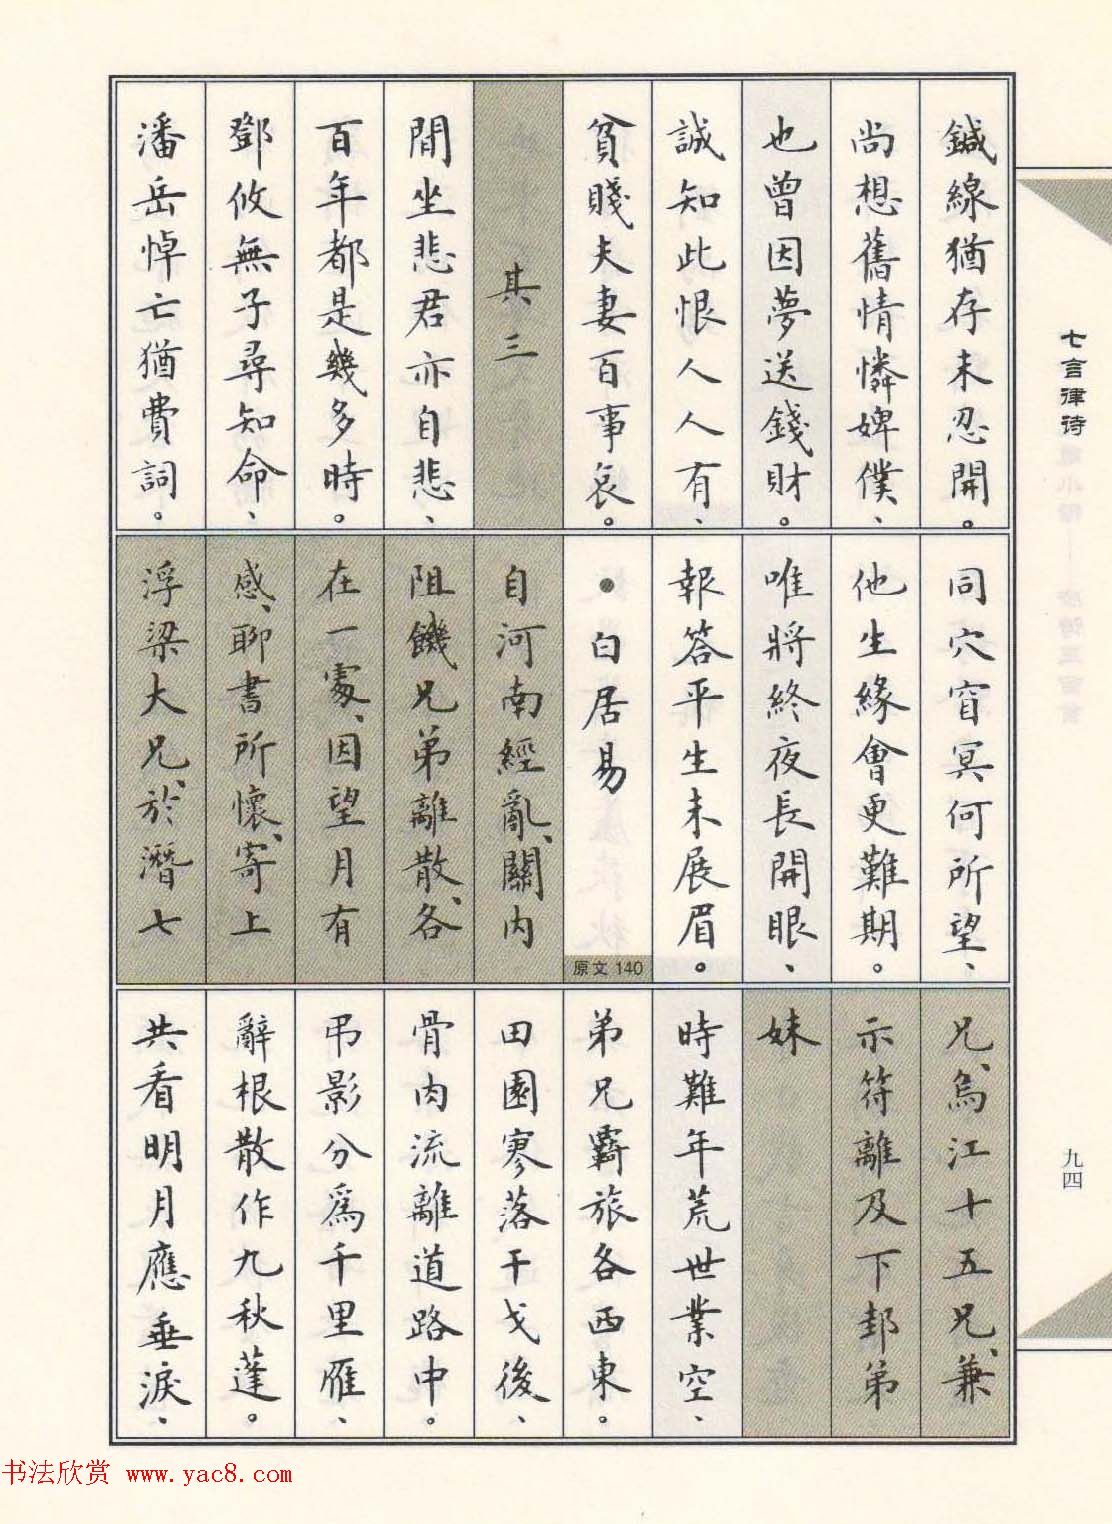 鍼線猶存未忍開。
尚想舊情憐婢僕、
也曾因夢送錢財。
誠知此恨人人有、
貧賤夫妻百事哀。
其三
閒坐悲君亦自悲、
百年都是幾多時。
鄧攸無子尋知命、
潘岳悼亡猶費詞。
同穴窅冥何所望、
他生緣會更難期。
唯將終夜長開眼、
報答平生未展眉。
●白居易
原文140
自河南經亂、關內
阻饑兄弟離散、各
在一處、因望月有
感、聊書所懷、寄上
浮梁大兄、於潛七
兄、烏江十五兄、兼
示符離及下邽弟
妹
時難年荒世業空、
弟兄羇旅各西東。
田園寥落干戈後、
骨肉流離道路中。
弔影分爲千里雁、
辭根散作九秋蓬。
共看明月應垂淚、
七言律诗
九四
书法欣赏 www.yac8.com